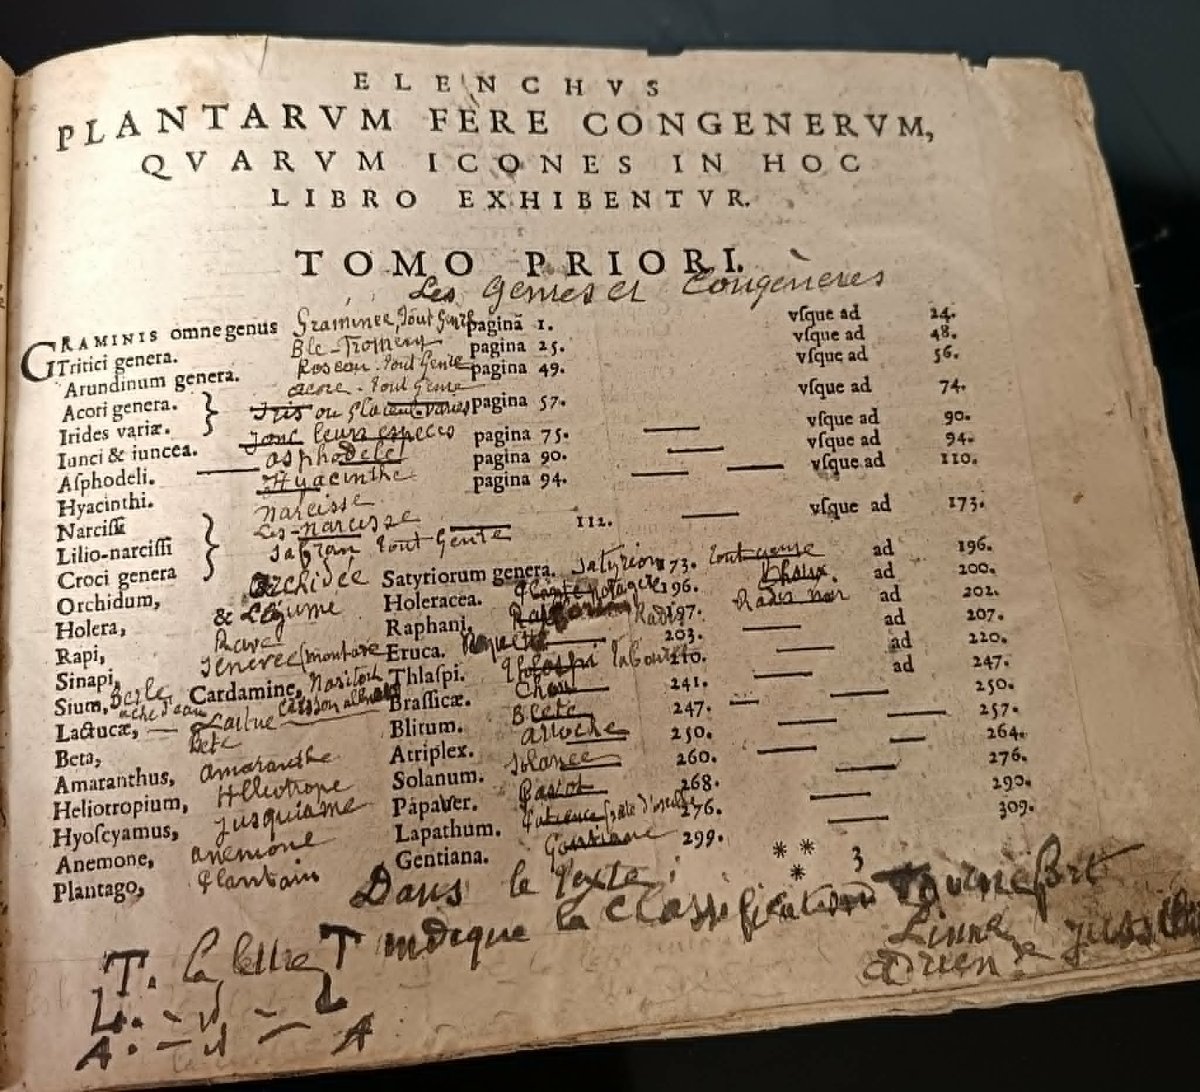 ELENCHVS
PLANTARVM FERE CONGENERVM,
QVARVM ICONES IN HOC
LIBRO EXHIBENTVR.
TOMO PRIORI.
Les Genres et Congènères
GRAMINIS omne genus Graminee, Tout Genre pagina 1. vſque ad 24.
Tritici genera. Ble-Froment pagina 25. vſque ad 48.
Arundinum genera. Roseau. Tout Genre pagina 49. vſque ad 56.
Acori genera. acore. Tout Genre
Irides variæ. Iris ou pagina 57. vſque ad 74.
Iunci & iuncea. Jonc leurs especes pagina 75. vſque ad 90.
Aſphodeli. asphodele pagina 90. vſque ad 94.
Hyacinthi. Hyacinthe pagina 94. vſque ad 110.
Narciſſi narcisse
Lilio-narciſſi Lis-narcisse 112. vſque ad 173.
Croci genera Safran Tout Genre
Orchidum, Orchidée Satyriorum genera. Satyrion 173. Tout genre ad 196.
Holera, & Légume Holeracea. 196. ad 200.
Rapi, Rave Raphani, Radis 197. Radis noir ad 202.
Sinapi, Eruca. Roquette 203. ad 207.
Sium, Berle ache d'eau Cardamine, Thlaſpi. 210. ad 220.
Lactucæ, Laitue Braſſicæ. Chou 241. ad 247.
Beta, Bete Blitum. Blete 247. 250.
Amaranthus, Amaranthe Atriplex. arroche 250. 257.
Heliotropium, Heliotrope Solanum. Solanee 260. 264.
Hyoſcyamus, Jusquiame Papaver. Pavot 268. 276.
Anemone, anemone Lapathum. 276. 290.
Plantago, Plantain Gentiana. Gentiane 299. 309.
* * * 3
Dans le Texte:
T. la lettre T indique la Classification Tournefort
L. - id - L Linne
A. - id - A Adrien de Jussieu